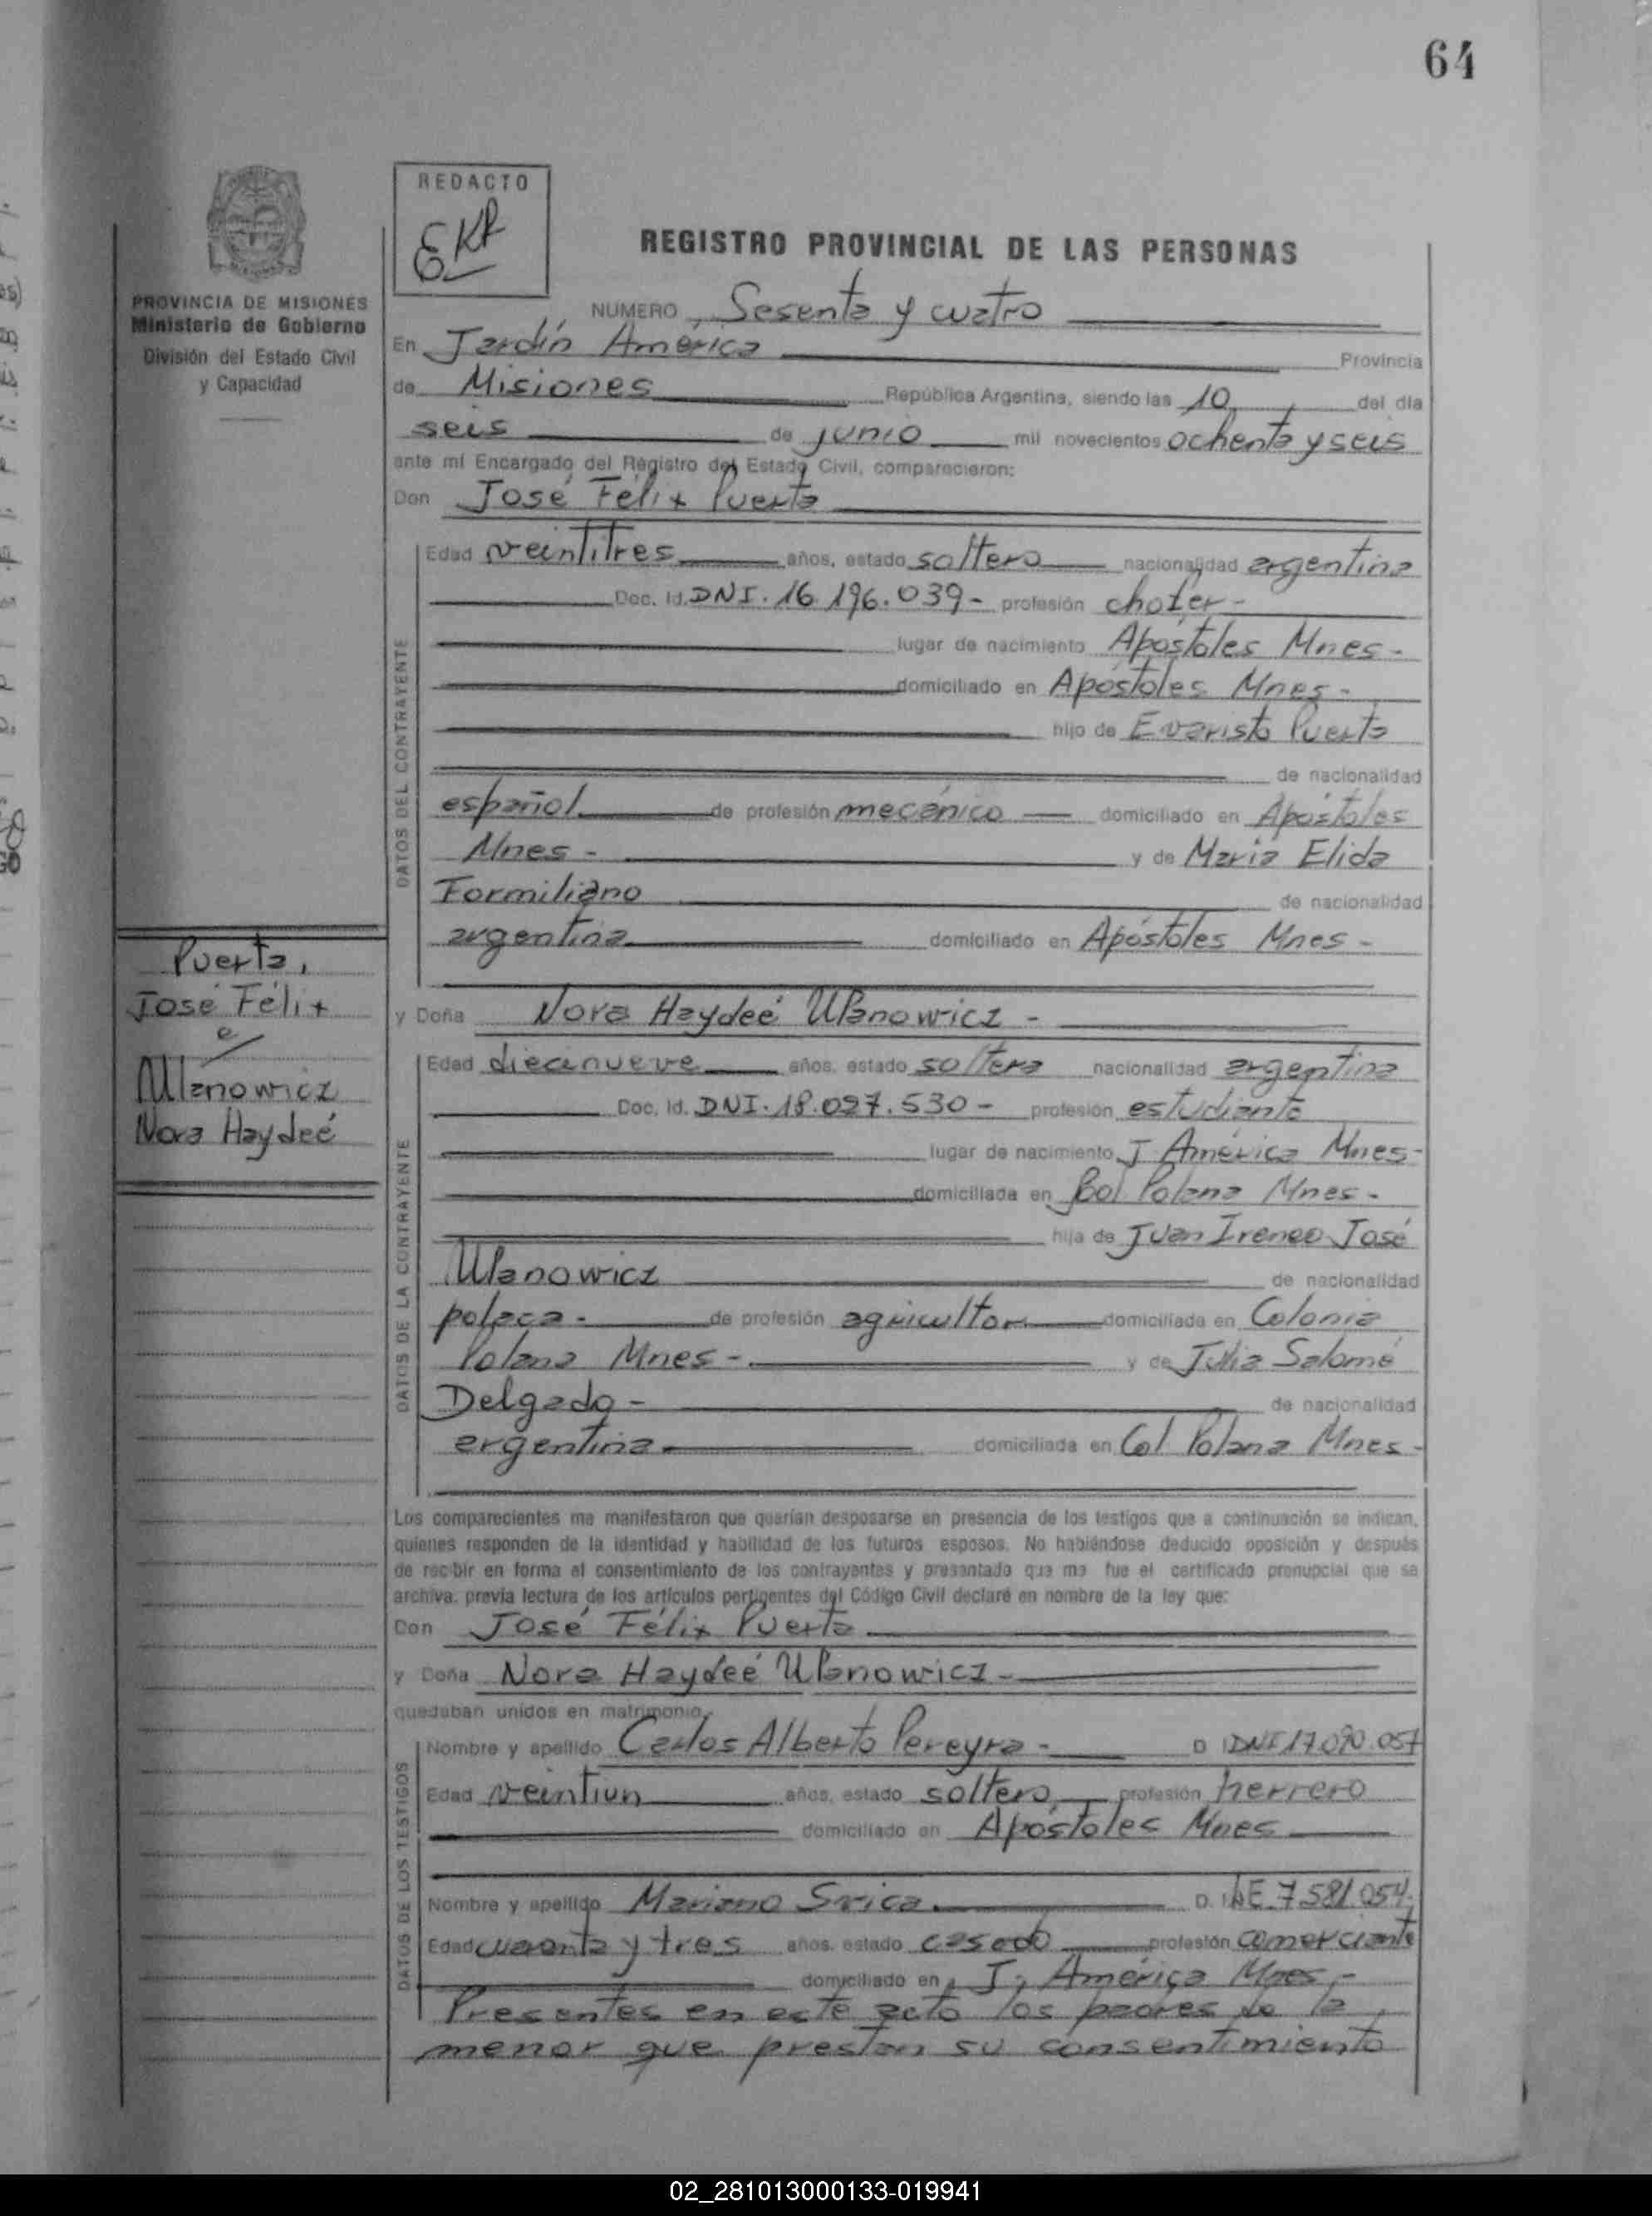 64
REDACTO
EKP
REGISTRO PROVINCIAL DE LAS PERSONAS
PROVINCIA DE MISIONES
Ministerio de Gobierno
División del Estado Civil
y Capacidad
NUMERO Sesenta y cuatro
En Jardín América Provincia
de Misiones República Argentina, siendo las 10 del día
seis de junio mil novecientos ochenta y seis
ante mí Encargado del Registro del Estado Civil, comparecieron:
Don José Félix Puerta
DATOS DEL CONTRAYENTE
Edad veintitres años, estado soltero nacionalidad argentina
Doc. Id. DNI. 16.196.039- profesión chofer-
lugar de nacimiento Apóstoles Mnes-
domiciliado en Apóstoles Mnes-
hijo de Evaristo Puerta
de nacionalidad
español de profesión mecánico domiciliado en Apóstoles
Mnes- y de María Elida
Formiliano de nacionalidad
argentina domiciliado en Apóstoles Mnes-
Puerta,
José Félix
c/
Ulanowicz
Nora Haydeé
y Doña Nora Haydeé Ulanowicz-
DATOS DE LA CONTRAYENTE
Edad diecinueve años. estado soltera nacionalidad argentina
Doc. Id. DNI. 18.027.530- profesión estudiante
lugar de nacimiento J América Mnes-
domiciliada en Col Polana Mnes-
hija de Juan Ireneo José
Ulanowicz de nacionalidad
polaca- de profesión agricultor domiciliada en Colonia
Polana Mnes- y de Julia Salomé
Delgado- de nacionalidad
argentina domiciliada en Col Polana Mnes-
Los comparecientes me manifestaron que querían desposarse en presencia de los testigos que a continuación se indican,
quienes responden de la identidad y habilidad de los futuros esposos. No habiéndose deducido oposición y después
de recibir en forma el consentimiento de los contrayentes y presentado que me fue el certificado prenupcial que se
archiva. previa lectura de los artículos pertinentes del Código Civil declaré en nombre de la ley que:
Don José Félix Puerta
y Doña Nora Haydeé Ulanowicz-
quedaban unidos en matrimonio.
DATOS DE LOS TESTIGOS
Nombre y apellido Carlos Alberto Pereyra- D I DNI 17.090.057
Edad veintiun años, estado soltero profesión herrero
domiciliado en Apóstoles Mnes
Nombre y apellido Mariano Srica D. I LE 7.581.054.
Edad cuarenta y tres años. estado casado profesión comerciante
domiciliado en J. América Mnes-
Presentes en este acto los padres de la
menor que prestan su consentimiento
02_281013000133-019941